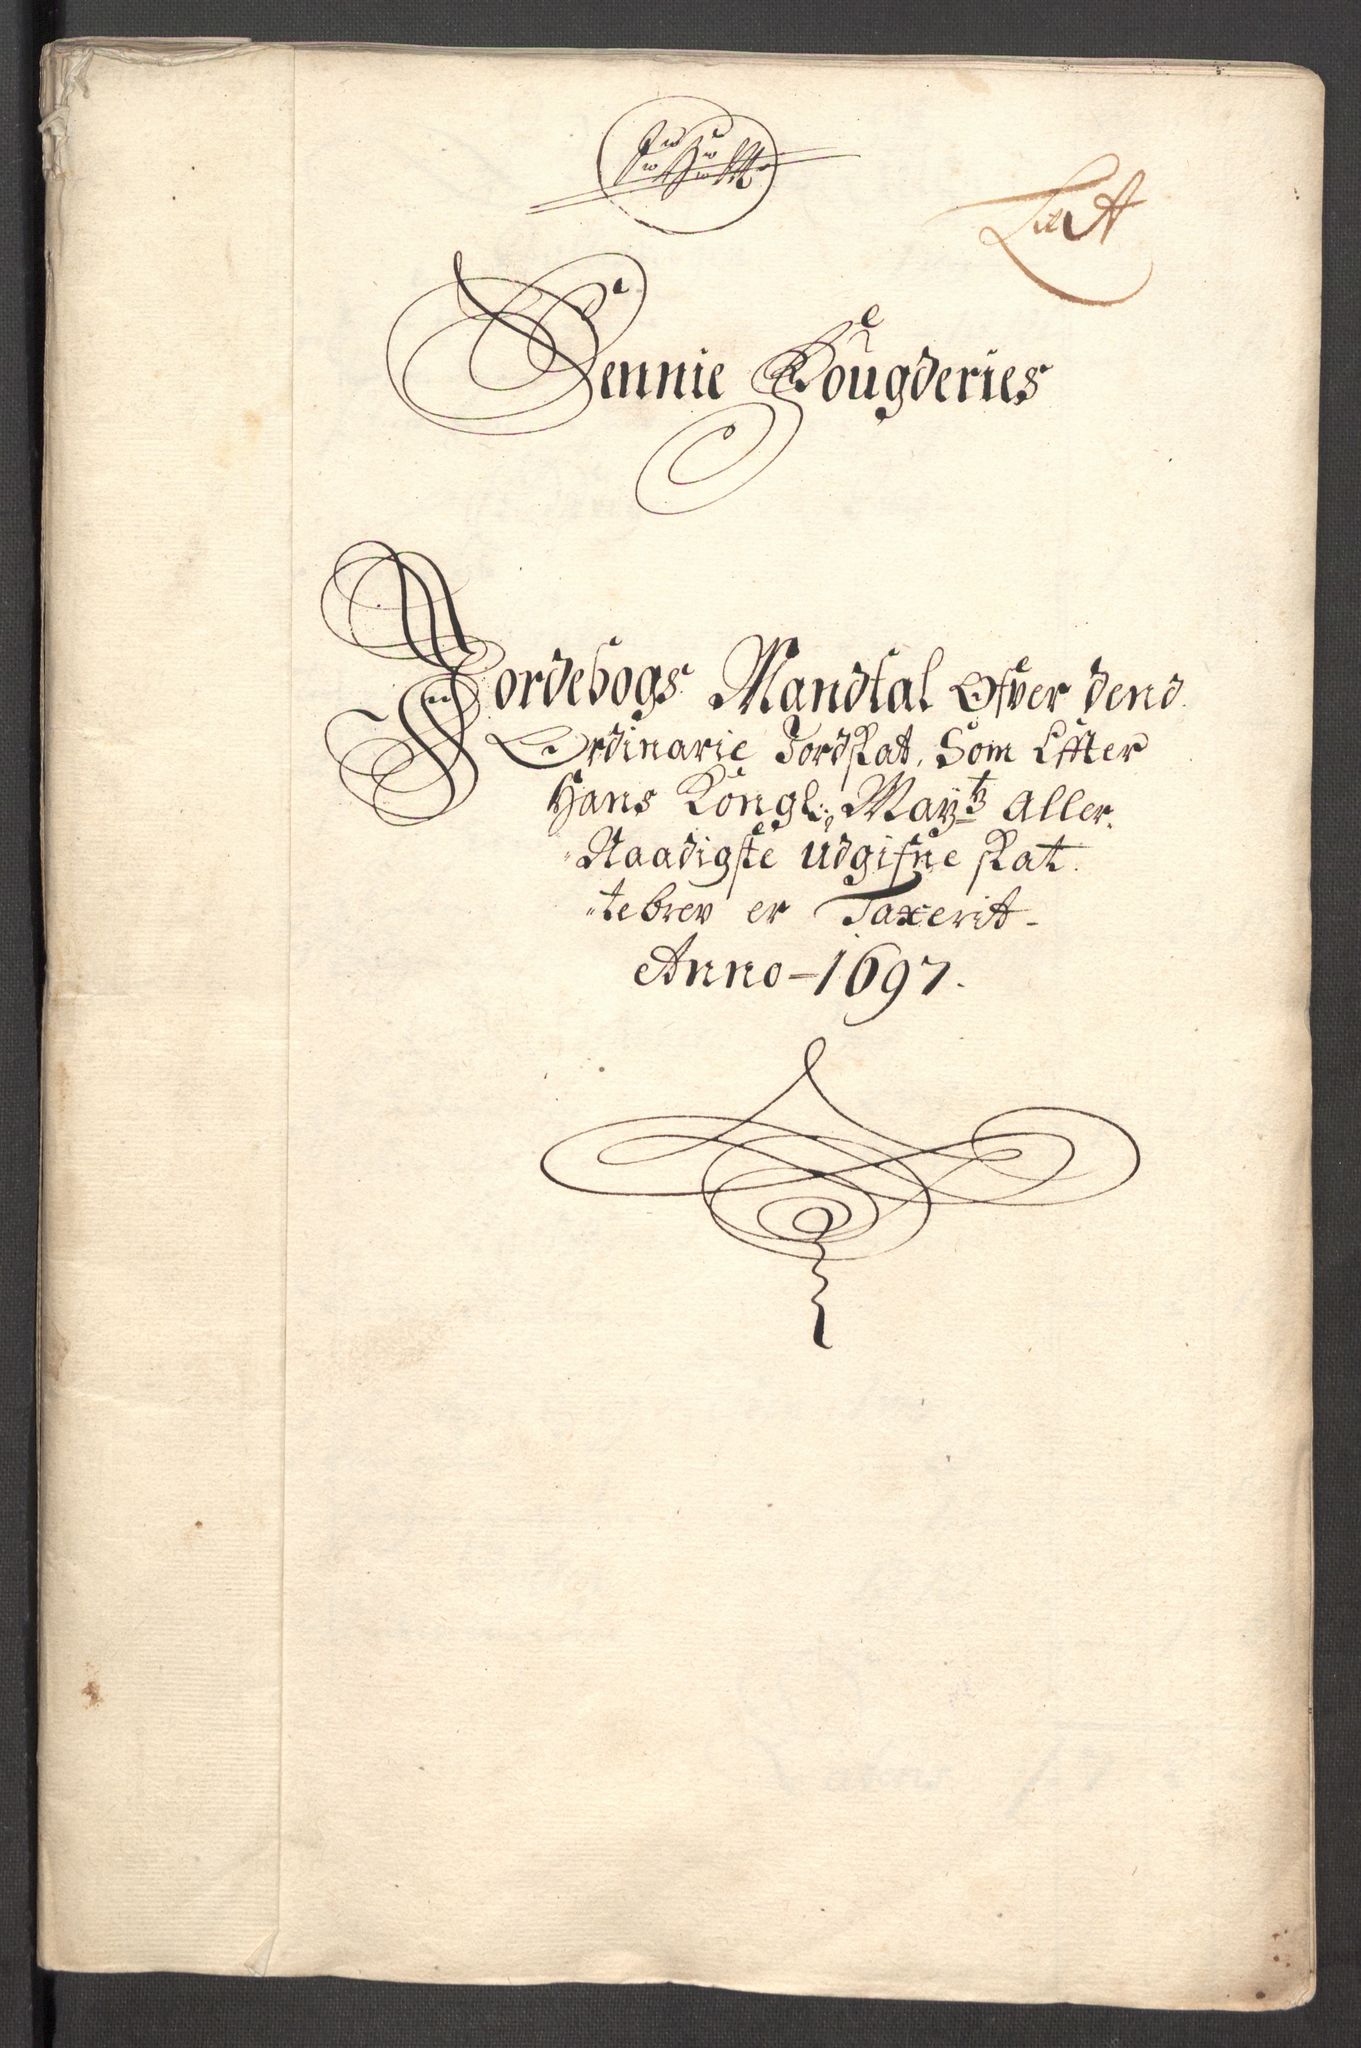 Litt A
Sennie Fougderies
Jordebogs Mandtal Ofver dend
Ordinarie Jordskat, Som Effter
Hans Kongl: Mayts Aller-
Naadigste udgifne skat-
tebrev er Taxerit-
Anno - 1697.